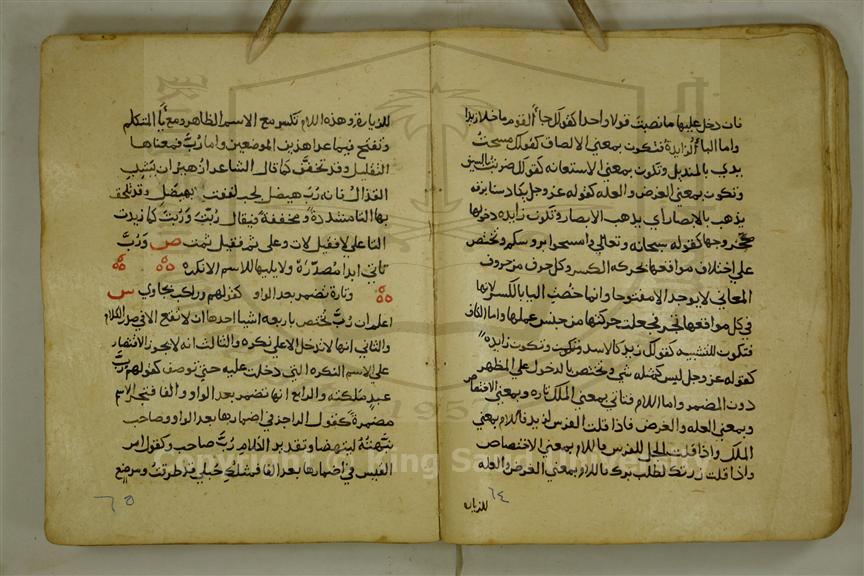 فان دخل عليها ما نصبت قولا واحدا كقولك جا القوم ما خلا زيدا
واما البا الزايدة فتكون بمعني الالصاق كقولك مسحت
يدي بالمنديل وتكون بمعني الاستعانه كقولك ضربت بالسيف
وتكون بمعني العرض والعله كقوله عز وجل يكاد سنا برقه
يذهب بالابصار اي يذهب الابصار وتكون زايده دخولها
كخروجها كقوله سبحانه وتعالي وامسحوا بروسكم وتختص
علي اختلاف مواقعها بحركه الكسر وكل حرف من حروف
المعاني لا يوجد الا مفتوحا وانما خصت البا بالكسر لانها
في كل مواقعها تجر فجعلت حركتها من جنس عملها واما الكاف
فتكون للتشبيه كقولك زيد كالاسد وتكون زايده
كقوله عز وجل ليس كمثله شي وتختص بالدخول علي المظهر
دون المضمر واما اللام فتاتي بمعني الملك تاره وبمعني الاختصاص
وبمعني العله والغرض فاذا قلت الفرس لزيد فاللام بمعني
الملك واذا قلت الجل للفرس فاللام بمعني الاختصاص
واذا قلت زرتك لطلب برك فاللام بمعني الغرض والعله
للزياره
٦٤
للزيارة وهذه اللام تكسر مع الاسم الظاهر ومع يا المتكلم
وتفتح فيما عدا هذين الموضعين واما رب فمعناها
التقليل وقد تخفف كما قال الشاعر ازهير ان يشب
القذال فانه رب هيضل لجب لففت بهيضل وقد تلحق
بها التا مشددة ومخففة فيقال ربت وربت كما زيدت
التا علي لا فقيل لات وعلي ثم فقيل ثمت ص ورب
تاتي ابدا مصدره ولا يليها الاسم الا نكره
وتارة تضمر بعد الواو كقولهم وراكب بجاوي س
اعلم ان رب تختص باربعه اشيا احدها ان لا تقع الا في صدر الكلام
والثاني انها لا تدخل الا علي نكره والثالث انه لا يجوز الاقتصار
علي الاسم النكره التي دخلت عليه حتي توصف كقولهم رب
عبد ملكته والرابع انها تضمر بعد الواو والفا فتجر الاسم
مضمرة كقول الراجز في اضمارها بعد الواو وصاحب
نبهته لينهضا وتقدير الكلام رب صاحب وكقول امر
القيس في اضمارها بعد الفا فمثلك حبلي قد طرقت ومرضع
٦٥